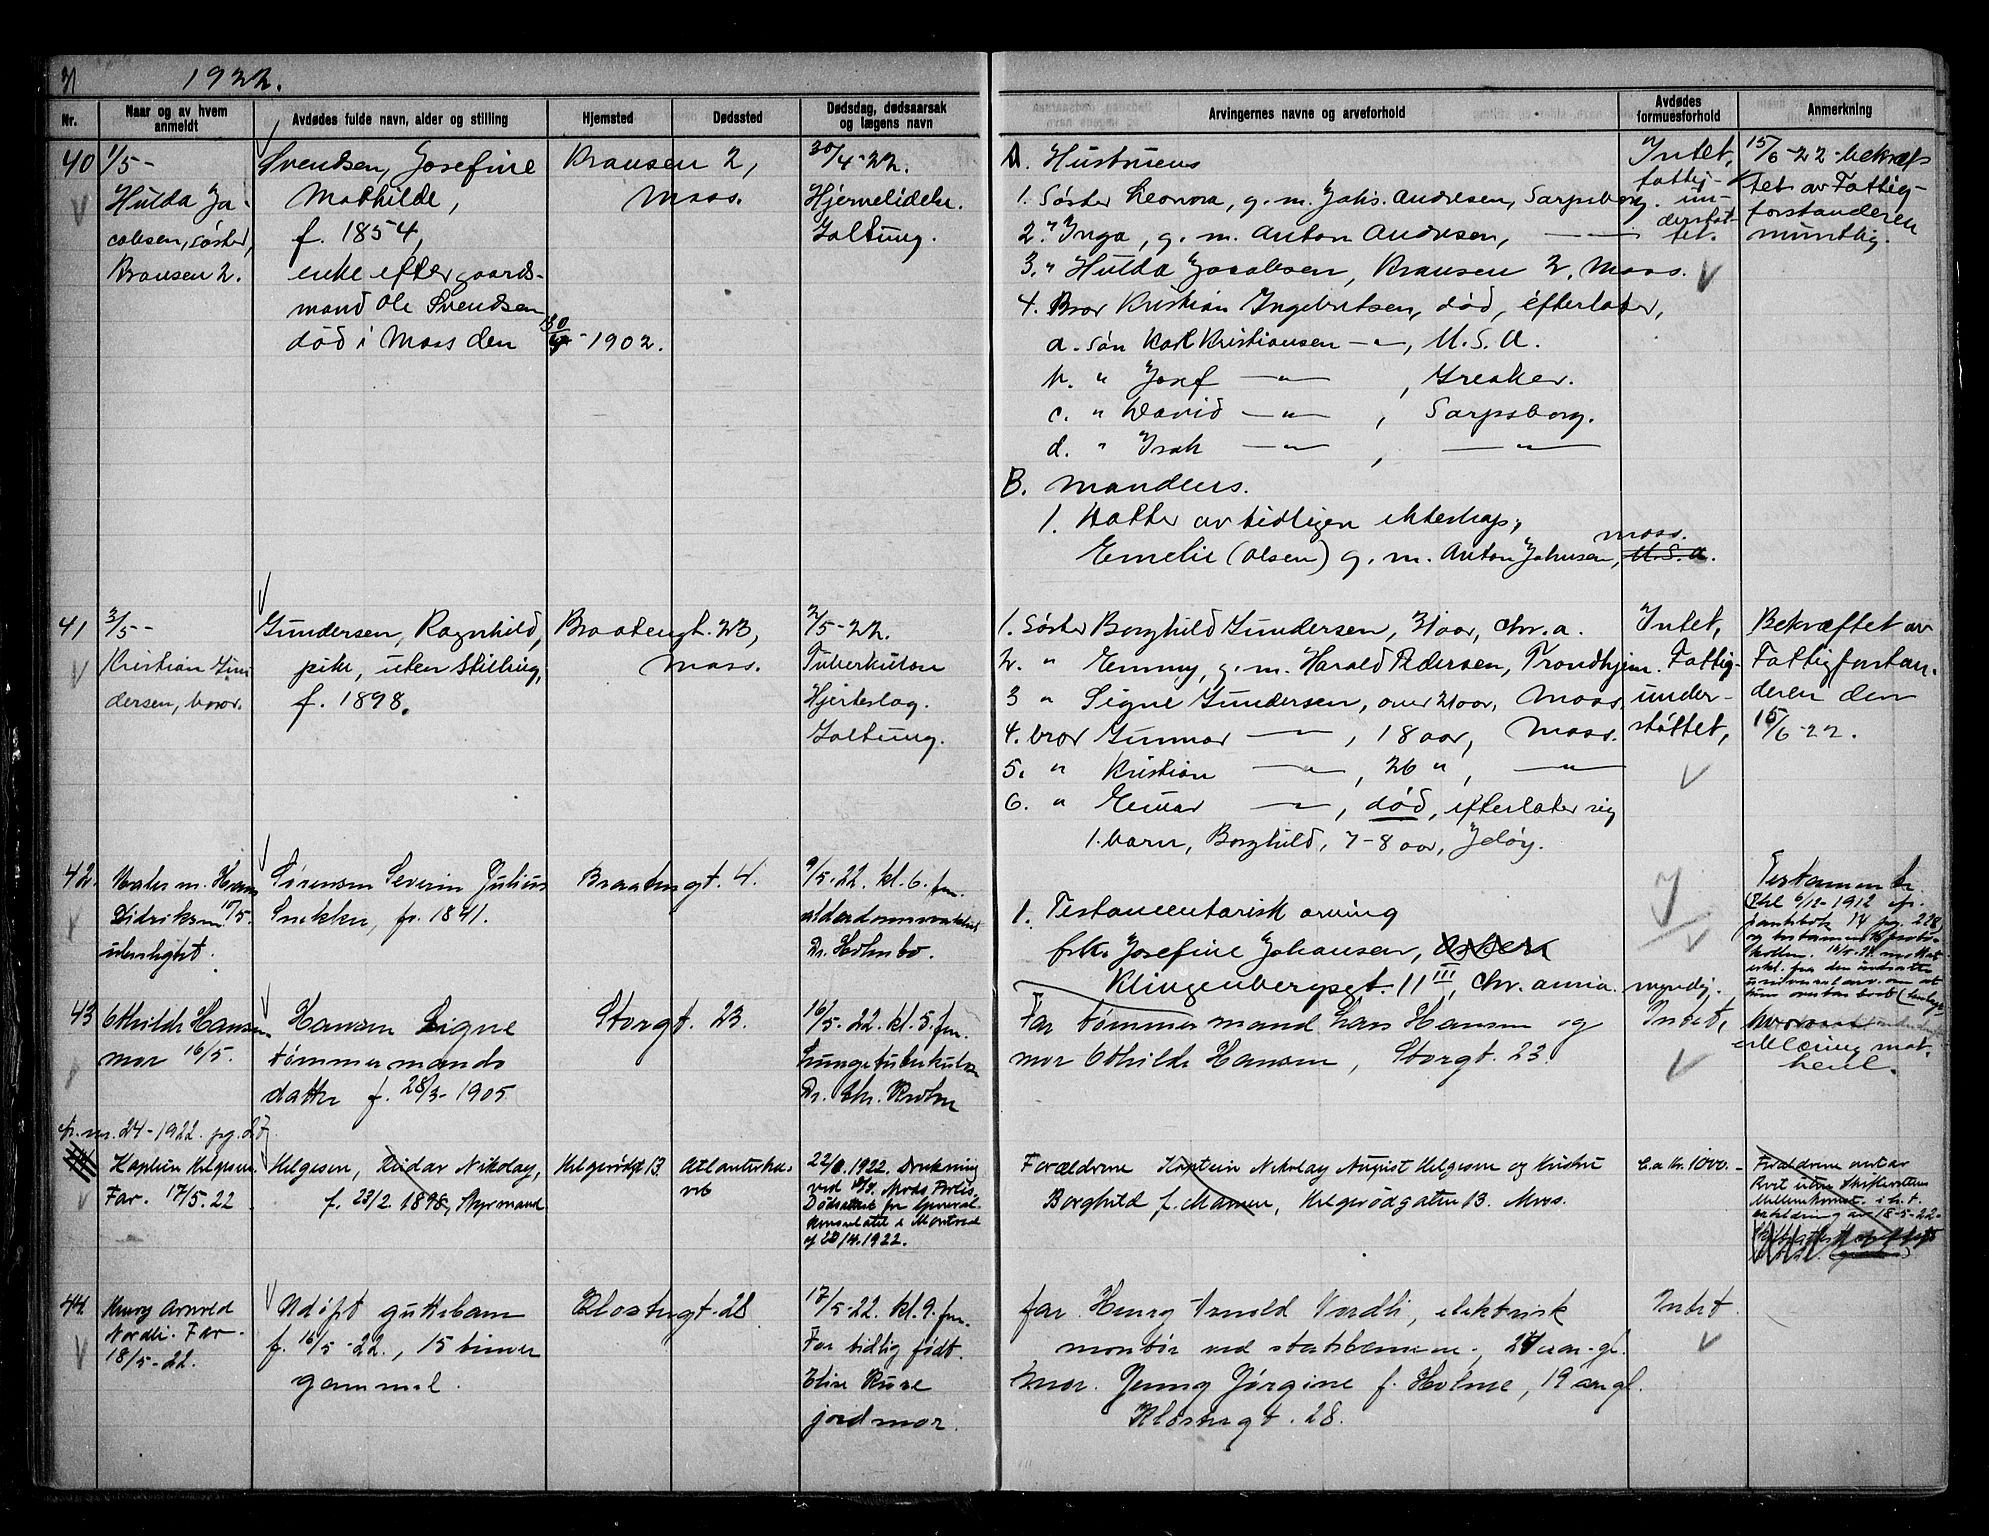 31
1922.
Nr.
Naar og av hvem
anmeldt
Avdødes fulde navn, alder og stilling
Hjemsted
Dødssted
Dødsdag, dødsaarsak
og lægens navn
Arvingernes navne og arveforhold
Avdødes
formuesforhold
Anmerkning
40
1/5 -
Hulda Ja-
cobsen, søster,
Kransen 2.
Svendsen, Josefine
Mathilde,
f. 1854,
enke efter gaards-
mand Ole Svendsen
død i Moss den 30/ - 1902.
Kransen 2,
Moss.
30/4-22.
Hjernelidelse.
Galtung.
A. Hustruens
1. Søster Leonora, g. m. Johs. Andresen, Sarpsborg.
2. " Inga, g. m. Anton Andresen, — " —
3. " Hulda Jacobsen, Kransen 2, Moss.
4. Bror Kristian Ingebretsen, død, efterlater,
a. søn Karl Kristiansen — " —, U.S.A.
b. " Josef — " — , Greaker.
c. " David — " — , Sarpsborg.
d. " Isak — " — , — " —
B. Mandens.
1. Datter av tidligere ekteskap,
Emelie (Olsen) g. m. Anton Johnsen, Moss. U.S.A.
Intet,
fattig-
un-
derstøt-
tet.
15/6-22-bekræf-
tet av Fattig-
forstanderen
muntlig.
41
3/5 -
Kristian Gun-
dersen, bror.
Gundersen, Ragnhild,
pike, uten stilling,
f. 1898.
Braatengt. 23,
Moss.
2/5-22.
Tuberkulose
Hjerteslag.
Galtung.
1. Søster Borghild Gundersen, 31 aar, Chr.a.
2. " Emmy, g. m. Harald Pedersen, Trondhjem.
3 " Signe Gundersen, over 21 aar, Moss
4. bror Gunnar — " —, 18 aar, Moss.
5. " Kristian — " —, 26 ", — " —
6. " Einar — " —, død, efterlater sig
1. barn, Borghild, 7-8 aar, Jeløy.
Intet,
Fattig-
under-
støttet,
Bekræftet av
Fattigforstan-
deren den
15/6-22.
42.
Maler m. Hans
Didriksen 10/5.
Sørensen Severin Julius
Snekker, f. 1841.
Braatengt. 4.
9/5-22. kl. 6. fm.
alderdomssvakhet
Dr. Holmbo.
1. Testamentarisk arving
frk. Josefine Johansen,
Klingenbergsgt. 11 III, Chr.ania. myndig.
Testament
43
Othilde Hansen
mor 16/5.
Hansen Signe
tømmermands
datter f. 28/3-1905
Storgt. 23.
16/5-22. kl. 5. fm.
Lungetuberkulose
Dr. Chr. Krohn
Far tømmermand Lars Hansen og
mor Othilde Hansen, Storgt. 23
Intet,
erklæring mot.
heul.
fr. nr. 24-1922. pg. 27.
44
Kaptein Helgesen.
Far. 17/5.22
Helgesen, Reidar Nikolay,
f. 23/2. 1898, styrmand
Helgerødgt 13.
Atlanterha-
vet
22/2.1922. Drukning
Dødsattest fra General-
konsulatet i Montreal
af 20/4.1922.
Forældrene Kaptein Nikolay August Helgesen og Hustru
Borghild f. Mamen, Helgerødgaten 13. Moss.
C.a Kr. 1000.-
Forældrene overtar
boet uten Skifterettens
Mellemkomst. i h. t.
erklæring av 18-5-22.
44.
Henry Arnold
Nordli. Far-
18/5-22.
Udøpt guttebarn
f. 16/5-22., 15 timer
gammel.
Klostergt. 28
17/5-22. kl. 9. fm.
For tidlig født.
Elise Ruse
jordmor.
far. Henry Arnold Nordli, elektrisk
montør ved statsbanene, 24 aar gl.
mor. Jenny Jørgine f. Holme, 19 aar gl.
Klostergt. 28.
Intet.